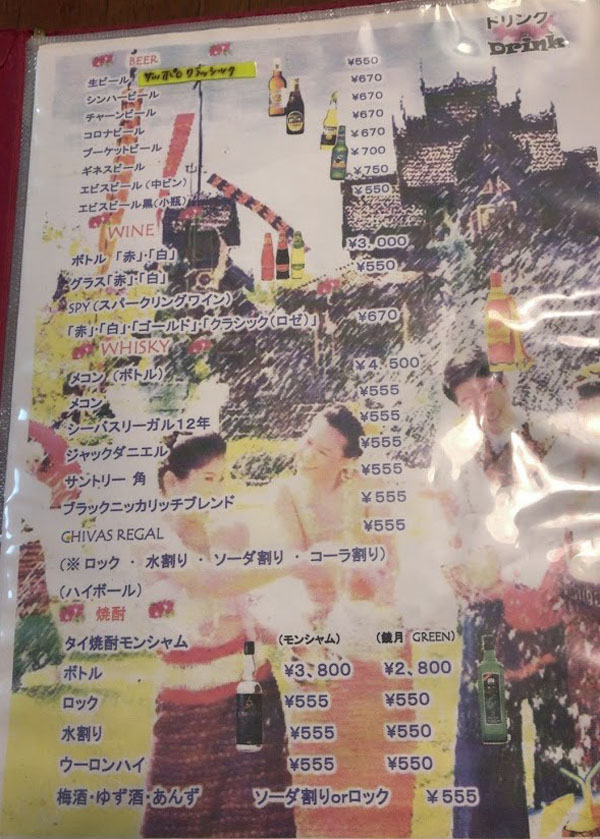 ドリンク
Drink
BEER
生ビール サッポロクラシック ¥550
シンハービール ¥670
チャーンビール ¥670
コロナビール ¥670
プーケットビール ¥670
ギネスビール ¥700
エビスビール(中ビン) ¥750
エビスビール黒(小瓶) ¥550
WINE
ボトル「赤」・「白」 ¥3,000
グラス「赤」・「白」 ¥550
SPY(スパークリングワイン)
「赤」・「白」・「ゴールド」・「クラシック(ロゼ)」 ¥670
WHISKY
メコン (ボトル) ¥4,500
メコン ¥555
シーバスリーガル12年 ¥555
ジャックダニエル ¥555
サントリー 角 ¥555
ブラックニッカリッチブレンド ¥555
CHIVAS REGAL ¥555
(※ロック ・ 水割り ・ ソーダ割り ・ コーラ割り)
(ハイボール)
焼酎
タイ焼酎モンシャム (モンシャム) (鏡月 GREEN)
ボトル ¥3,800 ¥2,800
ロック ¥555 ¥550
水割り ¥555 ¥550
ウーロンハイ ¥555 ¥550
梅酒・ゆず酒・あんず ソーダ割りorロック ¥555